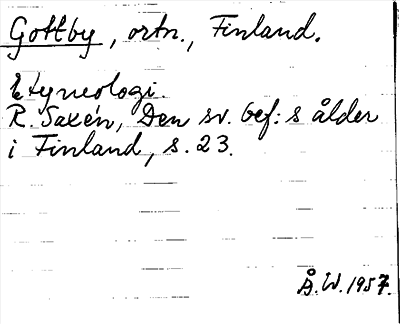 Gottby, ortn., Finland.
Etymologi.
R. Saxén, Den sv. bef:s ålder
i Finland, s. 23.
Å.W. 1957.